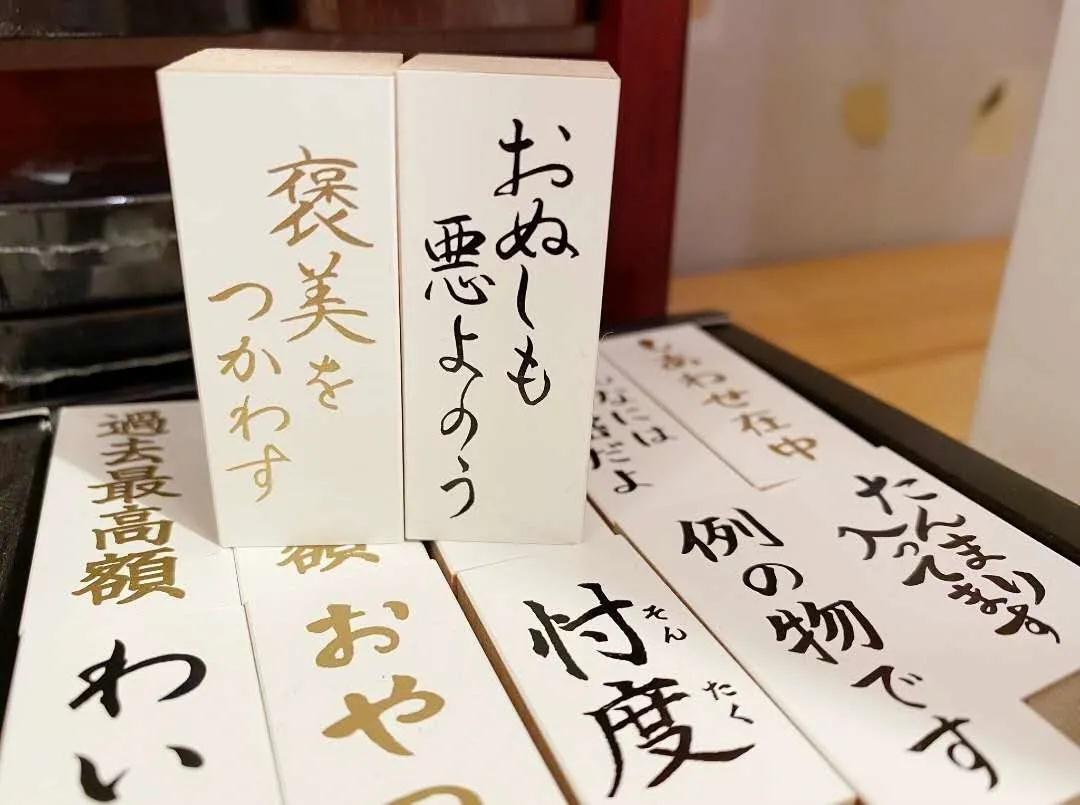 おぬしも
悪よのう
褒美を
つかわす
しあわせ在中
たんまり
入ってます
例の物です
だよ
忖度
そん
たく
額
おや
過去最高額
わい